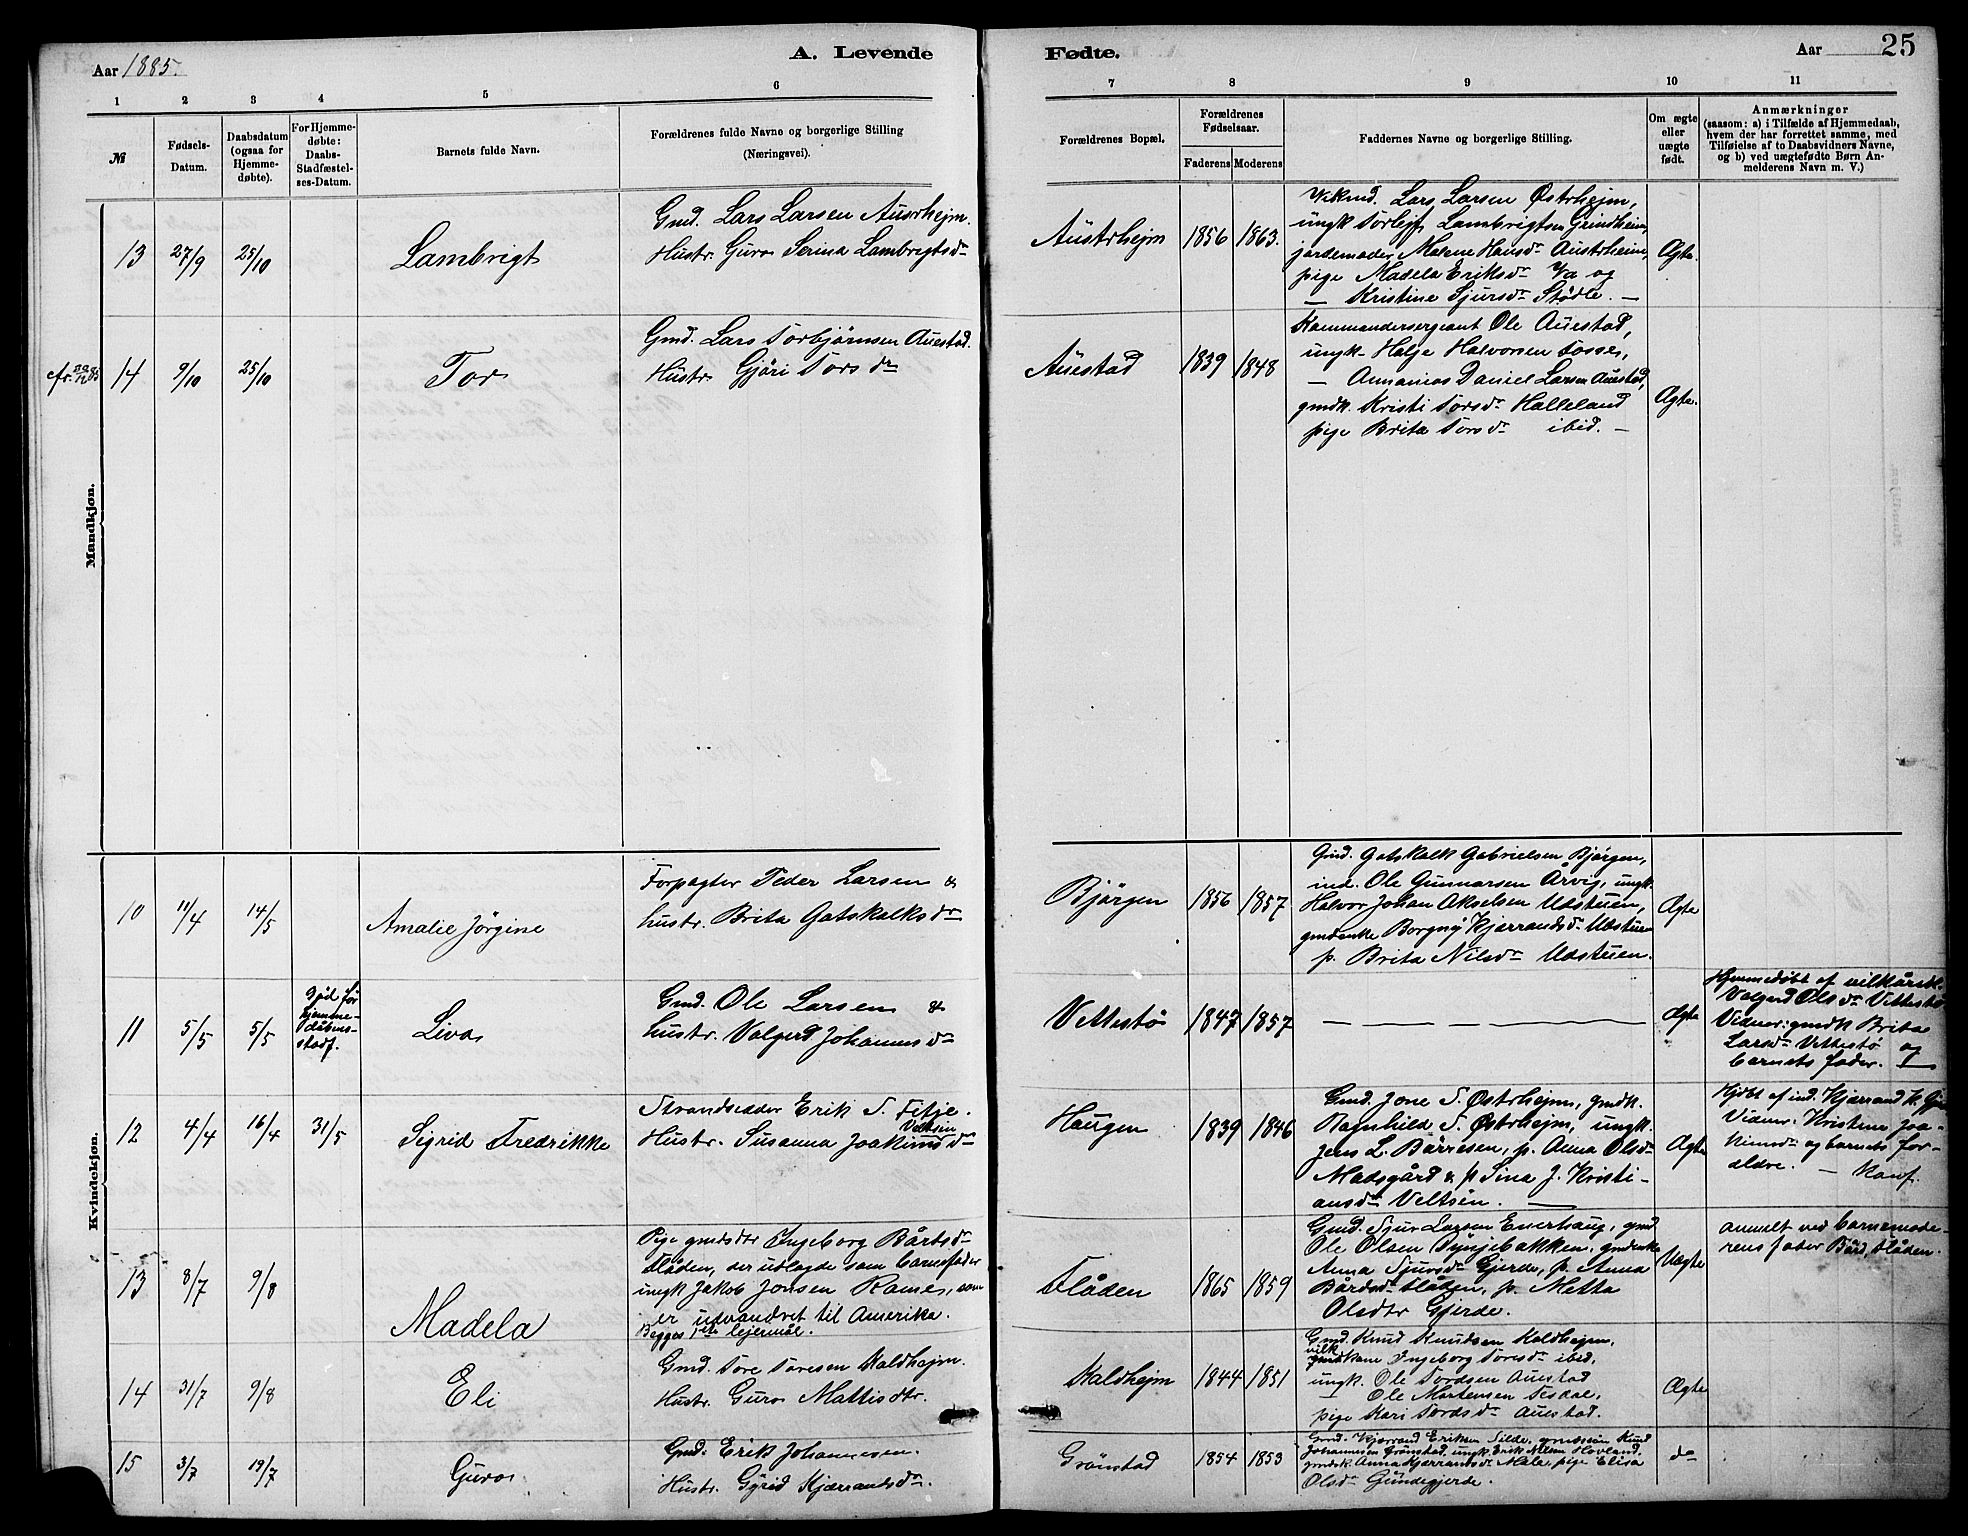 Aar 1885.
A. Levende
Fødte.
Aar
25
1 2 3 4 5 6 7 8 9 10 11
№
Fødsels-
Datum.
Daabsdatum
(ogsaa for
Hjemme-
døbte).
For Hjemme-
døbte:
Daabs-
Stadfæstel-
ses-Datum.
Barnets fulde Navn.
Forældrenes fulde Navne og borgerlige Stilling
(Næringsvei).
Forældrenes Bopæl.
Forældrenes
Fødselsaar.
Faderens
Moderens
Faddernes Navne og borgerlige Stilling.
Om ægte
eller
uægte
født.
Anmærkninger
(saasom: a) i Tilfælde af Hjemmedaab,
hvem der har forrettet samme, med
Tilføielse af to Daabsvidners Navne,
og b) ved uægtefødte Børn An-
melderens Navn m. V.)
Mandkjøn.
13
27/9
25/10
Lambrigt
Gmd. Lars Larsen Austrhejm.
Hustr. Guro Serina Lambrigtsdr
Austrhejm
1856
1863.
Lars Larsen Østrhejm,
ungk. Torlejf Lambrigtsen Grindheim,
jordemoder Malene Hansdr Austrheim,
pige Madela Eriksdr Va og
— Kristine Sjursdr Stödle. —
Ægte.
14
9/10
25/10
Tor
Gmd. Lars Torbjörnsen Auestad.
Hustr. Gjöri Torsdr
Auestad
1839
1848
Kommandersergeant Ole Auestad,
ungk. Helje Halvorsen Fosse,
— Annanias Daniel Larsen Auestad,
gmdk. Kristi Torsdr Halleland
pige Brita Torsdr ibid. —
Ægte.
Kvindekjøn.
10
11/4
14/5
Amalie Jörgine
Forpagter Peder Larsen &
hustr. Brita Gotskalksdr
Bjørgen
1856
1857
Gmd. Gotskalk Gabrielsen Bjørgen,
ind. Ole Gunnarsen Arvig, ungk.
Halvor Johan Akselsen Udstuen,
gmdenke Borgny Kjærrandsdr Udstuen
p. Brita Nilsdr Udstuen.
Ægte
11
5/5
5/5
hjemme-
dåbens
stadf.
Liva
Gmd. Ole Larsen &
hustr. Valgerd Johannesdr
Vettestø
1847
1857
— — — — — —
Ægte
Hjemmedøbt af
Valgerd Olsdr Vettestø
Vidner: gmdk Brita
Larsdr Vettestø og
barnets fader. —
12
4/4
16/4
31/5
Sigrid Fredrikke
Strandsidder Erik S. Fitje.
Veltsin
Hustr. Susanna Joakimsdr
Haugen
1839
1846
Gmd. Jone S. Østrhejm, gmdk.
Ragnhild S. Østrhejm, ungk.
Jens L. Børresen, p. Anna Olsdr
Madsgård & p Sina J. Kristi-
ansdr Veltsin. —
Ægte
Hjdbt af ind. Kjærrand K.
Vidner: Kristine Joa-
kimsdr og barnets for-
ældre. —
13
8/7
9/8
Madela
Pige gmdsdtr Ingeborg Bårdsdr
Flåden, der udlagde som barnefader
ungk Jakob Jonsen Rames, som
er udvandret til Amerika.
Begges 1ste lejermål.
Flåden
1865
1859
Gmd. Sjur Larsen Enerhaug, gmd
Ole Olsen Dynjebakken, gmdenke
Anna Sjursdr Gjerde, p. Anna
Bårdsdr Flåden, p. Metta
Olsdtr Gjerde.
Uægte
anmelt ved barnemode-
rens fader Bård Flåden.
14
31/7
9/8
Eli
Gmd. Tore Toresen Kaldhejm.
Hustr. Guro Mattisdtr.
Kaldhejm
1844
1851
Gmd. Knud Knudsen Kaldhejm,
vilk
gmdkone Ingeborg Toresdr ibid,
ungk. Ole Tordsen Auestad
— Ole Mortensen Tesdal,
pige Kari Tordsdr Auestad.
Ægte
15
3/7
19/7
Guro
Gmd. Erik Johannesen.
Hustr. Gyrid Kjærrandsdr.
Grönstad
1854
1853
Gmd. Kjærrand Eriksen Silde, gmdssön Knud
Johannesen Grönstad, ungk. Erik Nilsen Hovland,
gmdsk. Anna Kjærrandsdr Mela, pige Elisa
Olsdr Gundegjerde.
do